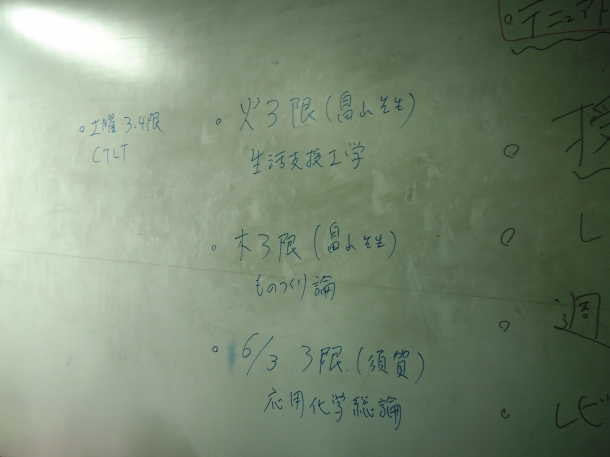 。土曜 3.4限
CTLT
。火3限(畠山先生)
生活支援工学
。木3限(畠山先生)
ものづくり論
。6/3 3限.(須賀)
応用化学総論
。テニュア
。授
。レ
。週
。レビ